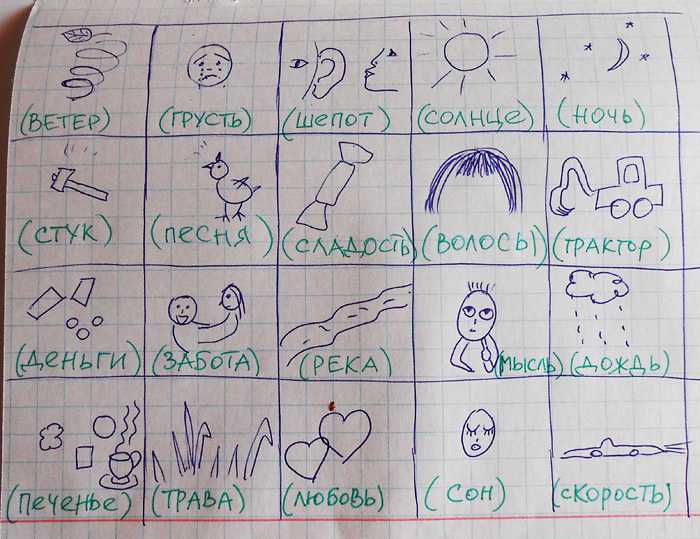 (ВЕТЕР) (ГРУСТЬ) (ШЕПОТ) (СОЛНЦЕ) (НОЧЬ)
(СТУК) (ПЕСНЯ) (СЛАДОСТЬ) (ВОЛОСЫ) (ТРАКТОР)
(ДЕНЬГИ) (ЗАБОТА) (РЕКА) (МЫСЛЬ) (ДОЖДЬ)
(ПЕЧЕНЬЕ) (ТРАВА) (ЛЮБОВЬ) (СОН) (СКОРОСТЬ)